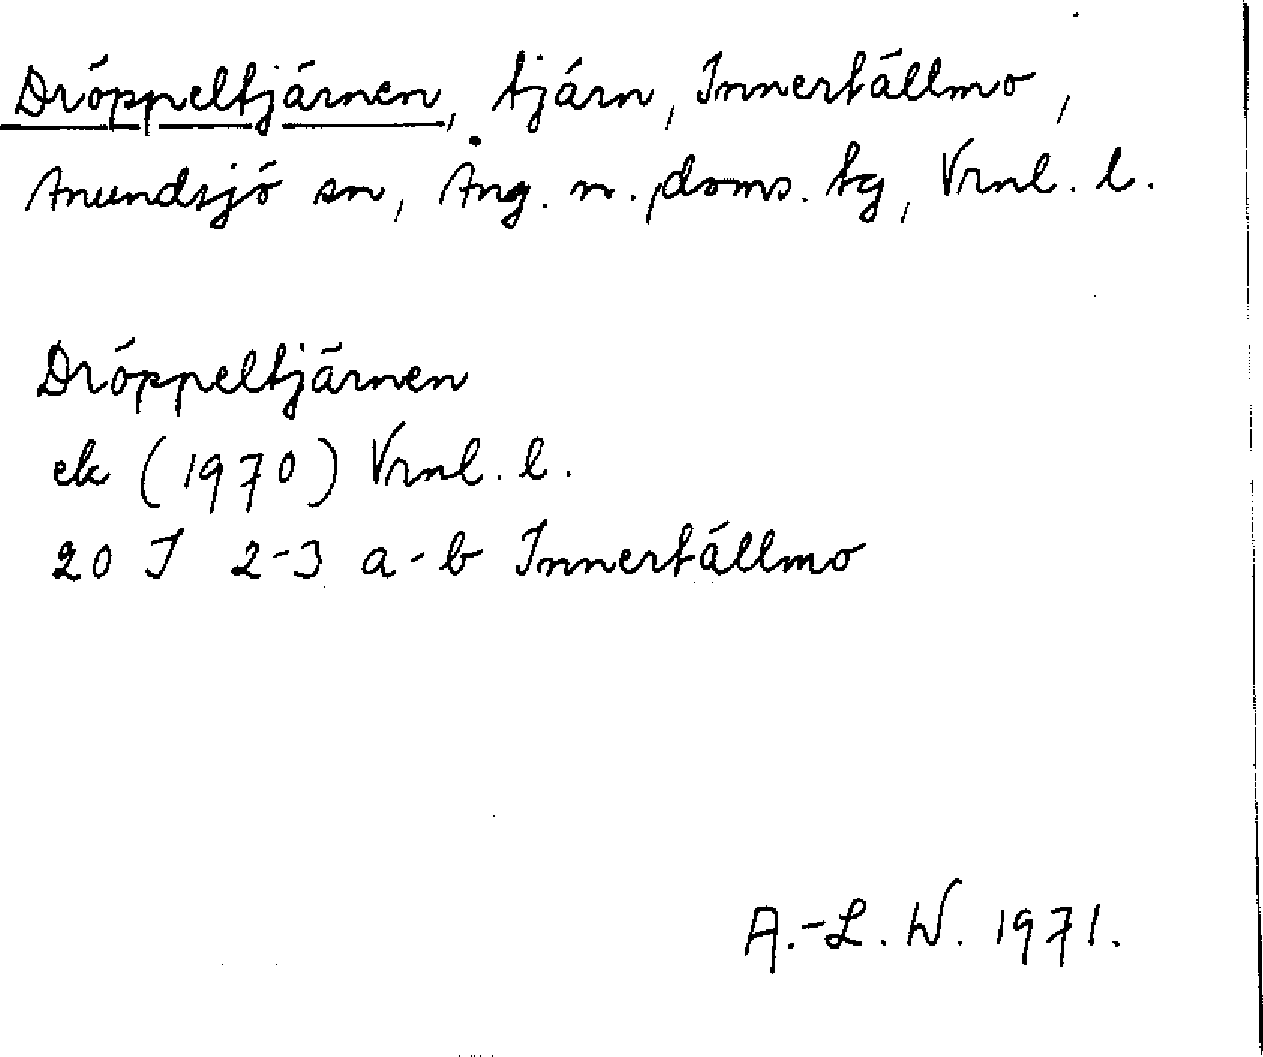 Dröppeltjärnen, tjärn, Innertällmo,
Anundsjö sn, Ång. n. doms. tg, Vrnl. l.
Dröppeltjärnen
ek (1970) Vrnl. l.
20 I 2-3 a-b Innertällmo
A.-L. W. 1971.